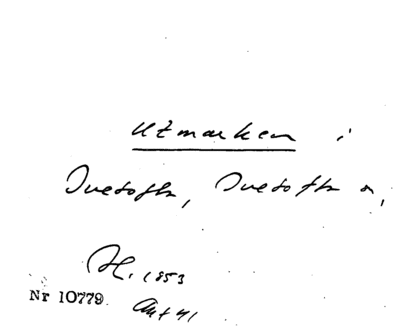 Utmarken i
Ivetofta, Ivetofta s,
H. 1853
Nr 10779
Akt 41